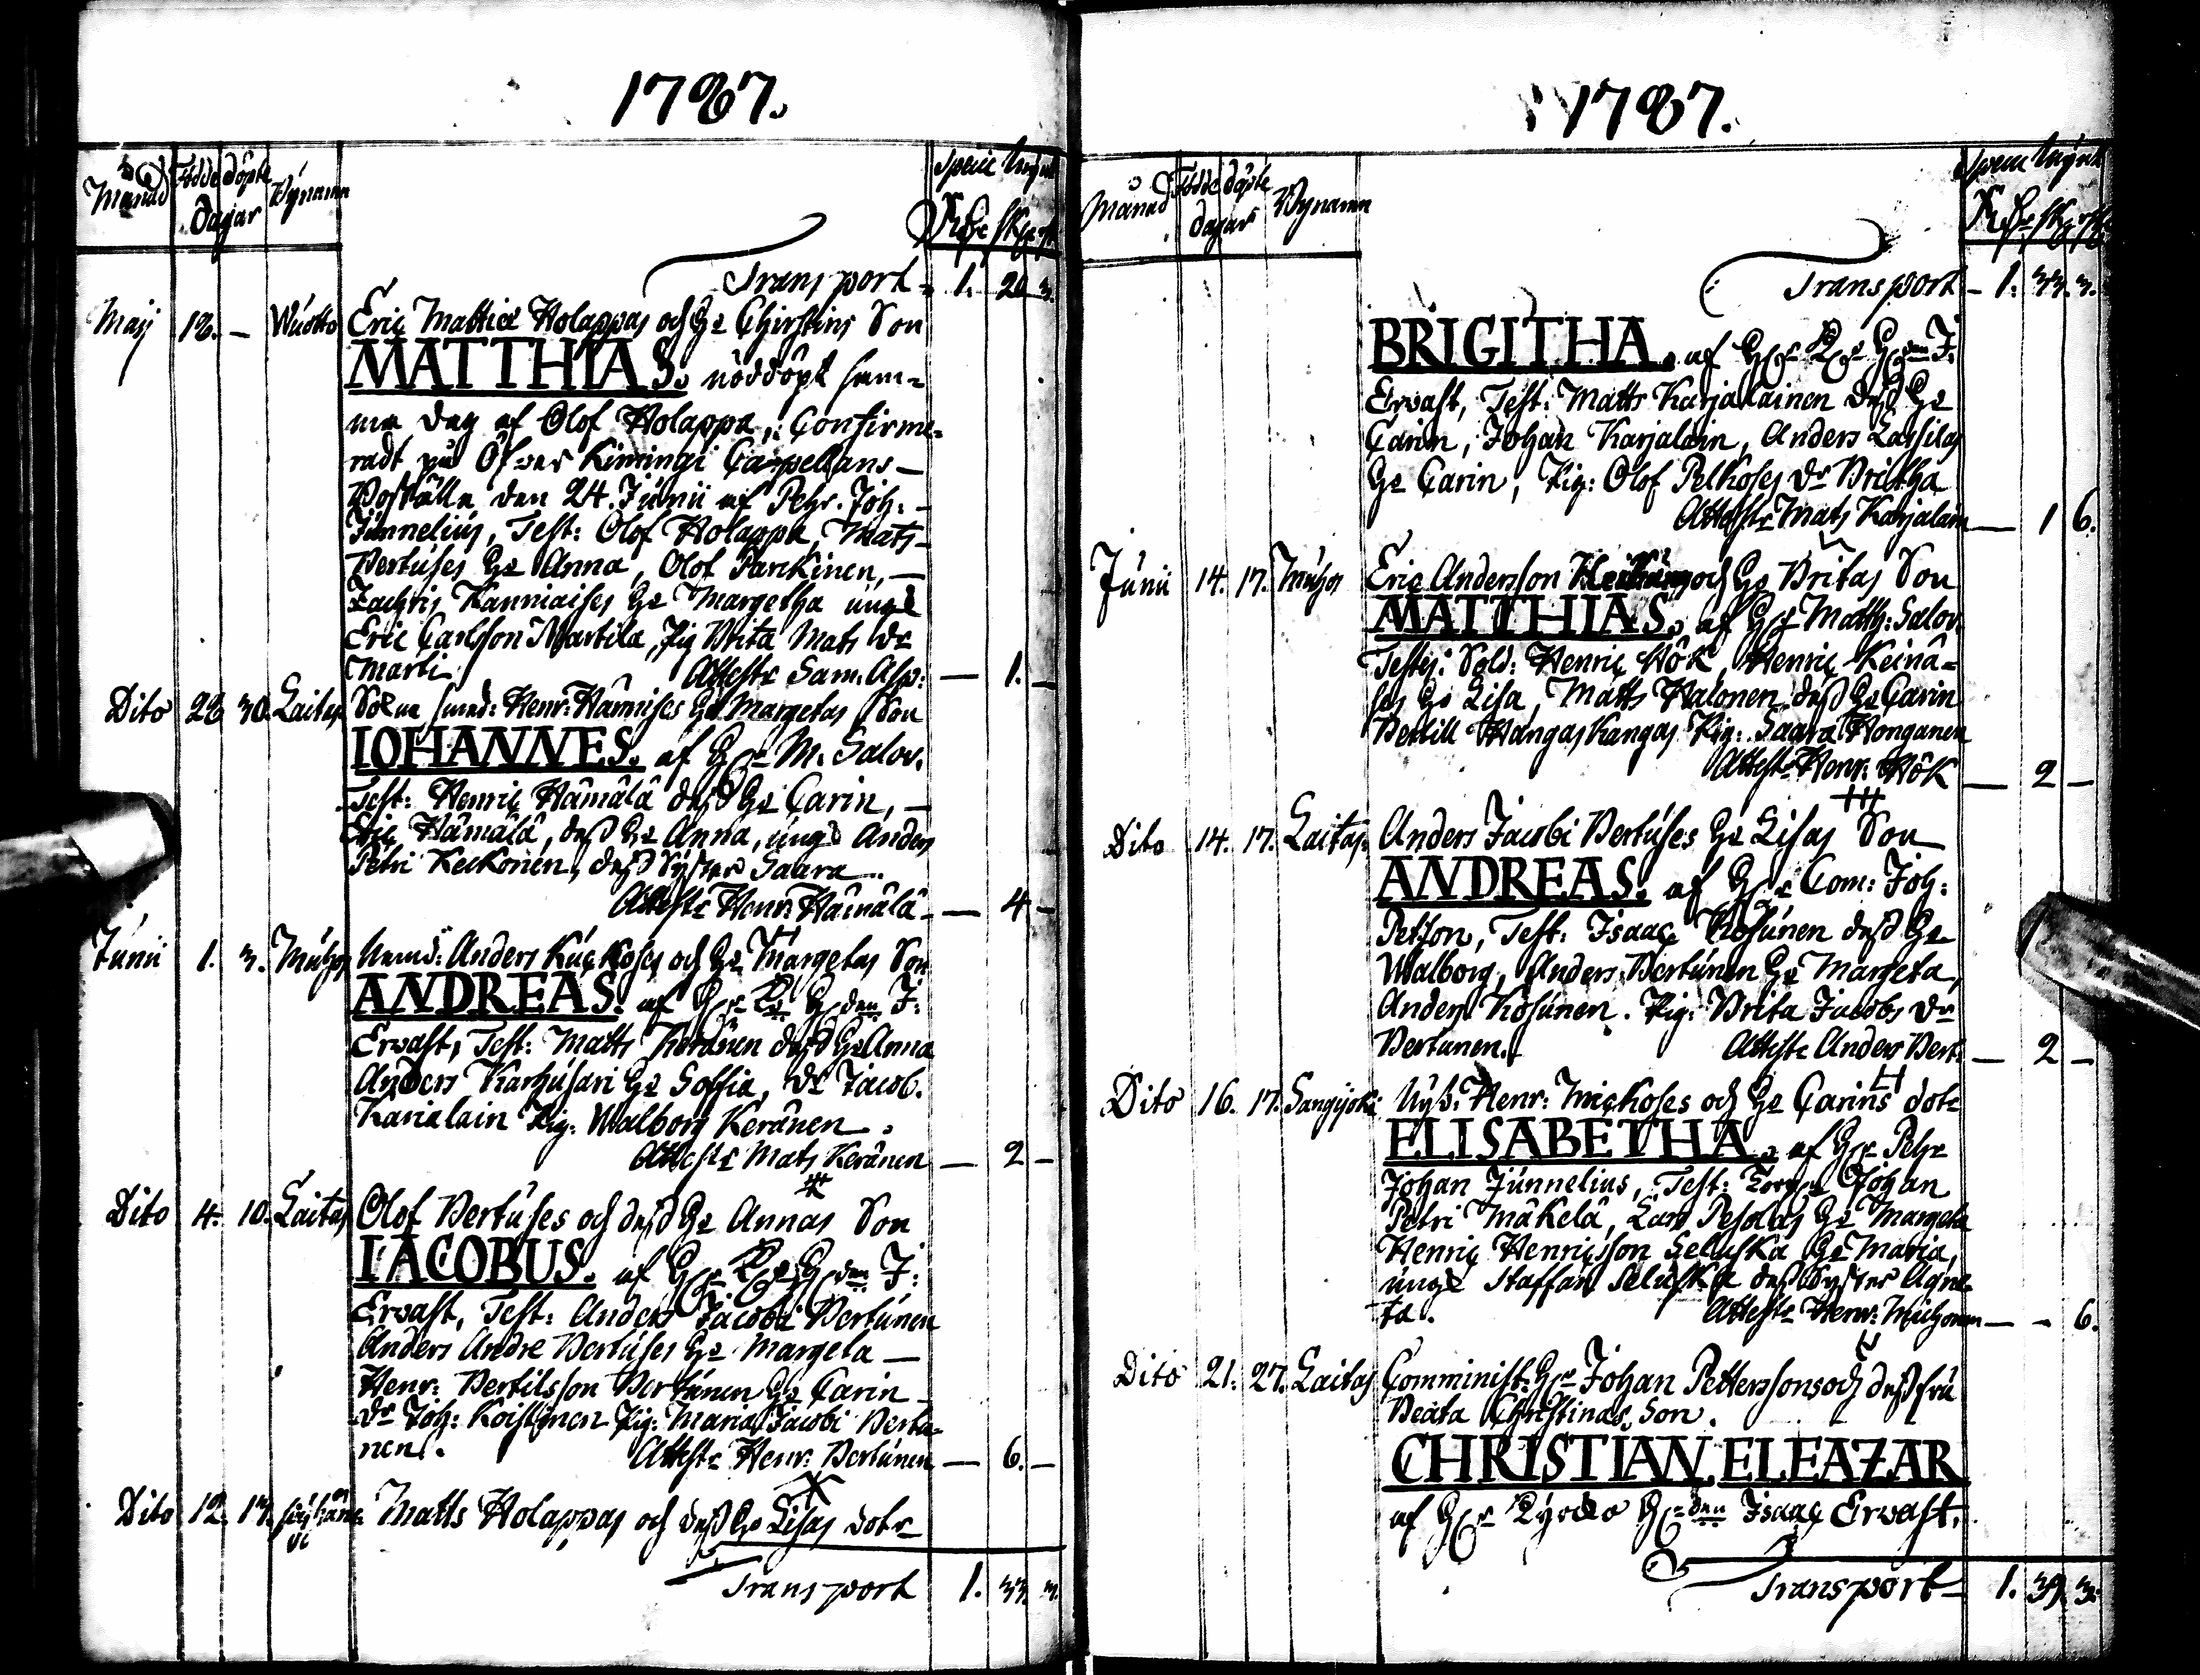 1787.
Månad Födde döpte Bynamn Specie Mynt
dagar Rdr sk. rst.
Transport 1. 20 3.
Maij 18. — Wuotto Eric Mattiæ Holappas och H:s Chirstins Son
MATTHIAS. nöddöpt sam-
ma dag af Olof Holappa, Confirme-
radt på Öfver Kiimingi Cappellans
Boställe den 24. Junii af Pehr. Joh:
Junnelius, Test: Olof Holappa, Mats
Vertuses H:u Anna, Olof Parckinen,
Zachris Kanniaises H:u Margetha ung:
Eric Carlsson Martila, Pig Brita Mats dr
Marti Attest: Sam. Alp: — 1. —
Dito 28 30. Laitas Henr: Hannises H:s Margetas Son
IOHANNES. af H:r M. Salov.
Test: Henric Hämälä dess H:u Carin,
Eric Hämälä, dess H:u Anna, ung: Anders
Petri Keckonen, dess Syster Saara.
Attest: Henr: Hämälä — 4 —
Junii 1. 3. Muhos Anders Kuckoses och H:s Margetas Son
ANDREAS. af H:r K: H:den J:
Ervast, Test: Matts Keränen dess H:u Anna
Anders Karhusari H:u Soffia, dr Jacob.
Karialain Pig: Walborg Keränen.
Attest: Mats Keränen — 2 —
Dito 4. 10. Laitas Olof Vertuses och dess H:s Annas Son
IACOBUS. af H:r K: H:den J:
Ervast, Test: Anders Jacobi Vertunen
Anders Andre Vertuses H:u Margeta —
Henr: Bertilsson Vertunen H:u Carin
dr Joh: Koistinen Pig: Maria Jacobi Vertu-
nen. Attest: Henr: Vertunen — 6. —
Dito 12. 13. Matts Holappas och dess H:s Lisas dotr
Transport 1. 33. 3.
1787.
Månad Födde döpte Bynamn Specie Mynt
dagar Rdr sk. rst.
Transport — 1. 33. 3.
BRIGITHA. af H:r K: H:den J:
Ervast, Test: Matts Karjalainen dess H:u
Carin, Johan Karjalain, Anders Lassilas
H:u Carin, Pig: Olof Pelkoses dr Britha
Attest: Mats Karjalain — 1 6.
Junii 14. 17. Muhos Eric Andersson och H:s Britas Son
MATTHIAS. af H:r Matth: Salov.
Testes: Sold: Henric Hök, Henric Keinä-
ses H:u Lisa, Matts Halonen dess H:u Carin
Bertill Hangaskangas Pig: Saara Honganen
Attest: Henr: Hök — 2 —
Dito 14. 17. Laitas Anders Jacobi Vertuses H:s Lisas Son
ANDREAS. af H:r Com: Joh:
Petson, Test: Isaac Kosunen dess H:u
Walborg, Anders Vertunen H:u Margeta,
Anders Kosunen. Pig: Brita Jacobs dr
Vertunen. Attest: Anders Vert: — 2 —
Dito 16. 17. Sangijoki Nyb: Henr: Mickoses och H:s Carins dotr
ELISABETHA. af H:r Pehr
Johan Junnelius, Test: Johan
Petri Mäkelä, Lars Pesolas H:u Margeta
Henric Henricsson Seluska H:u Maria,
unge Staffan Seluska dess Syster Agne-
ta. Attest: Henr: Muhonen — - 6.
Dito 21. 27. Laitas Comminist: H:r Johan Petterssons och dess fru
Beata Christinas Son.
CHRISTIAN ELEAZAR
af H:r Kyrcko H:den Isaac Ervast.
Transport 1. 39. 3.